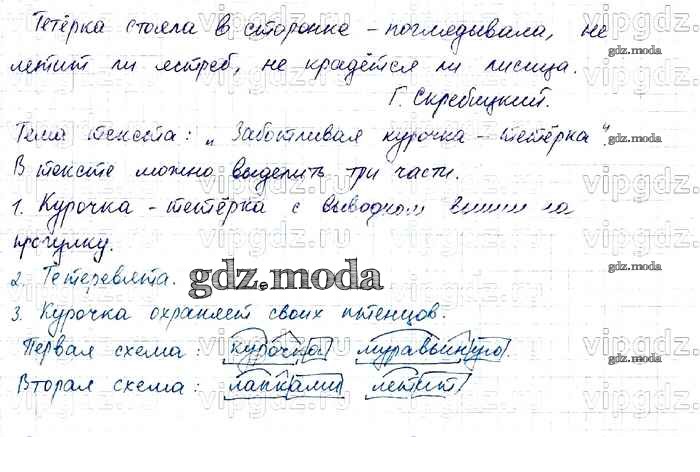 Тетёрка стояла в сторонке - поглядывала, не
летит ли ястреб, не крадётся ли лисица.
Г. Скребицкий.
Тема текста: "Заботливая курочка - тетёрка".
В тексте можно выделить три части.
1. Курочка - тетёрка с выводком на
прогулку.
2. Тетеревята.
3. Курочка охраняет своих птенцов.
Первая схема: курочка муравьиную.
Вторая схема: лапками летит
gdz.moda
vipgdz.ru